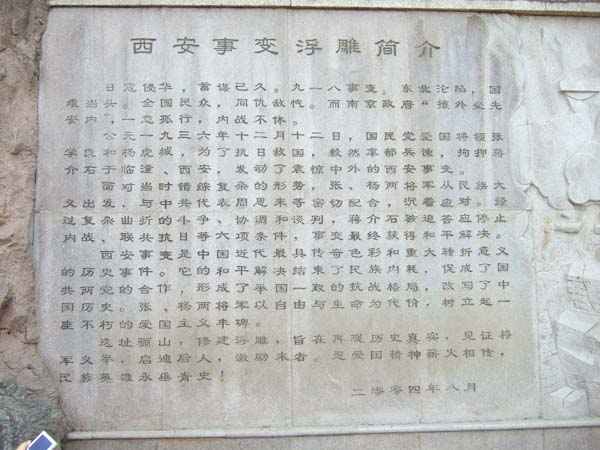 西安事变浮雕简介
日寇侵华，蓄谋已久。九一八事变。东北沦陷，国
难当头。全国民众，同仇敌忾。而南京政府“攘外必先
安内”，一意孤行，内战不休。
公元一九三六年十二月十二日，国民党爱国将领张
学良和杨虎城，为了抗日救国，毅然率部兵谏，拘押蒋
介石于临潼、西安，发动了震惊中外的西安事变。
面对当时错综复杂的形势，张、杨两将军从民族大
义出发，与中共代表周恩来等密切配合，沉着应对。经
过复杂曲折的斗争、协调和谈判，蒋介石被迫答应停止
内战、联共抗日等六项条件，事变最终获得和平解决。
西安事变是中国近代最具传奇色彩和重大转折意义
的历史事件。它的和平解决结束了民族内耗，促成了国
共两党的合作，形成了全国一致的抗战格局，改写了中
国历史。张、杨两将军以自由与生命为代价，树立起一
座不朽的爱国主义丰碑。
选址骊山，修建浮雕，旨在再现历史真实，见证将
军义举，启迪后人，激励来者。愿爱国精神薪火相传，
民族英雄永垂青史！
二零零四年八月